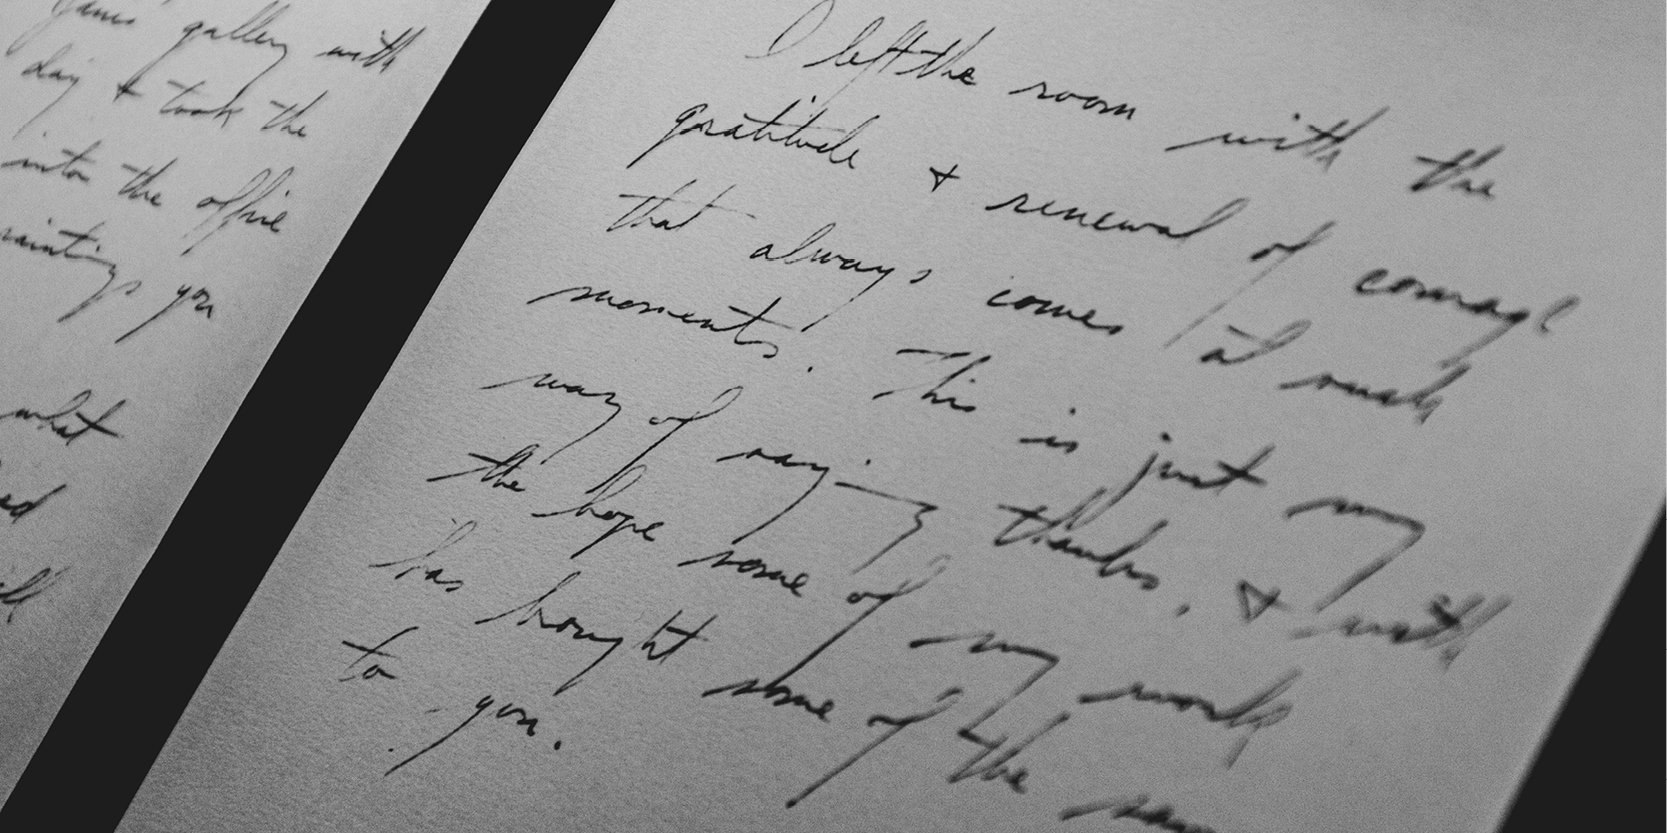 James' gallery with
day & took the
into the office
paintings you
what
ed
I left the room with the
gratitude & renewal of courage
that always comes at such
moments. This is just my
way of saying thanks, & with
the hope some of my work
has brought some of the same
to you.